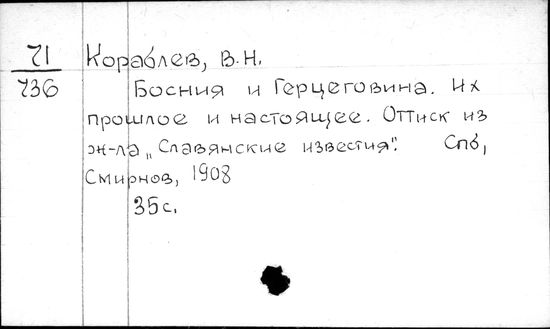 71 Кораблев, В.Н.
736 Босния и Герцеговина. Их
прошлое и настоящее. Оттиск из
ж-ла „Славянские известия". Спб,
Смирнов, 1908
35 с.